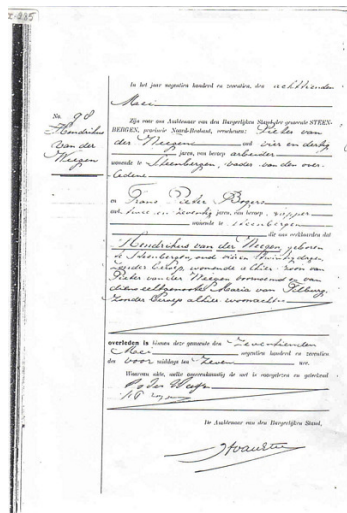 In het jaar negentien honderd en zeventien, den achttienden
Mei
No. 98
Hendrikus
van der
Weegen
Zijn voor ons Ambtenaar van den Burgerlijken Stand der gemeente STEEN-
BERGEN, provincie Noord-Brabant, verschenen: Pieter van
der Weegen oud vier en dertig
jaren, van beroep arbeider
wonende te Steenbergen, vader van den over-
ledene
en Frans Pieter Bogers
oud twee en zeventig jaren, van beroep
wonende te Steenbergen
die ons verklaarden dat
Hendrikus van der Weegen, geboren
te Steenbergen, oud dagen
zonder beroep, wonende alhier, zoon van
Pieter van der Weegen voornoemd en van
diens echtgenoote Maria van Tilburg
zonder beroep alhier woonachtig
overleden is binnen deze gemeente den zeventienden
Mei negentien honderd en zeventien
des voor middags ten zeven ure.
Waarvan akte, welke overeenkomstig de wet is voorgelezen en geteekend
De Ambtenaar van den Burgerlijken Stand,